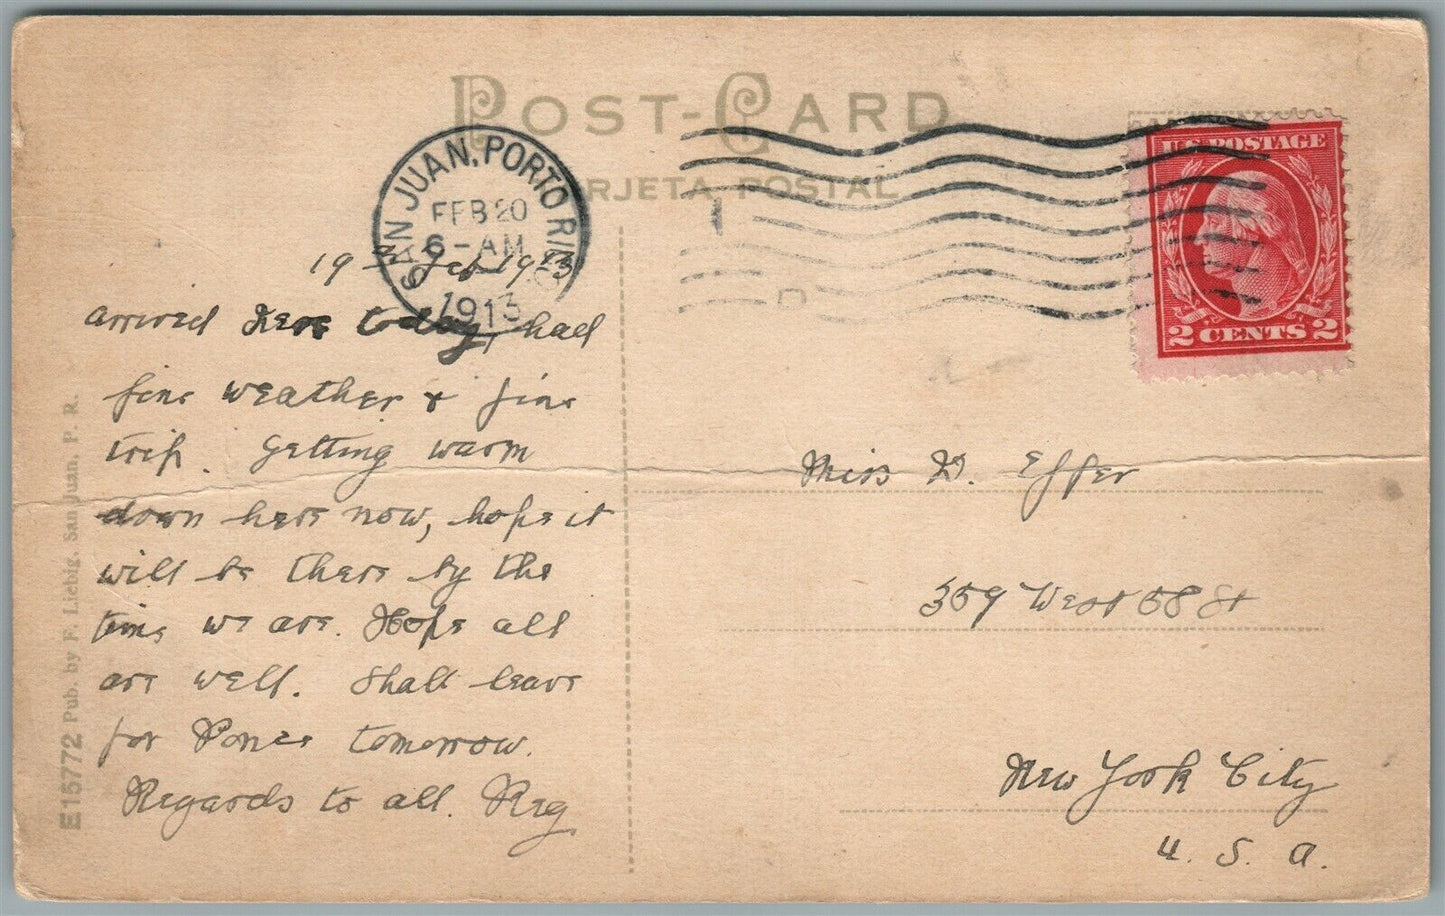 POST-CARD
TARJETA POSTAL
SAN JUAN, PORTO RICO
FEB 20
6-AM
1913
U.S. POSTAGE
2 CENTS 2
19th Feb 1913
arrived here today, had
fine weather & fine
trip. Getting warm
down here now, hope it
will be there by the
time we are. Hope all
are well. Shall leave
for Ponce tomorrow.
Regards to all. Reg
Miss D. Effer
359 West 58 St
New York City
U. S. A.
E15772 Pub. by F. Liebig, San Juan, P. R.